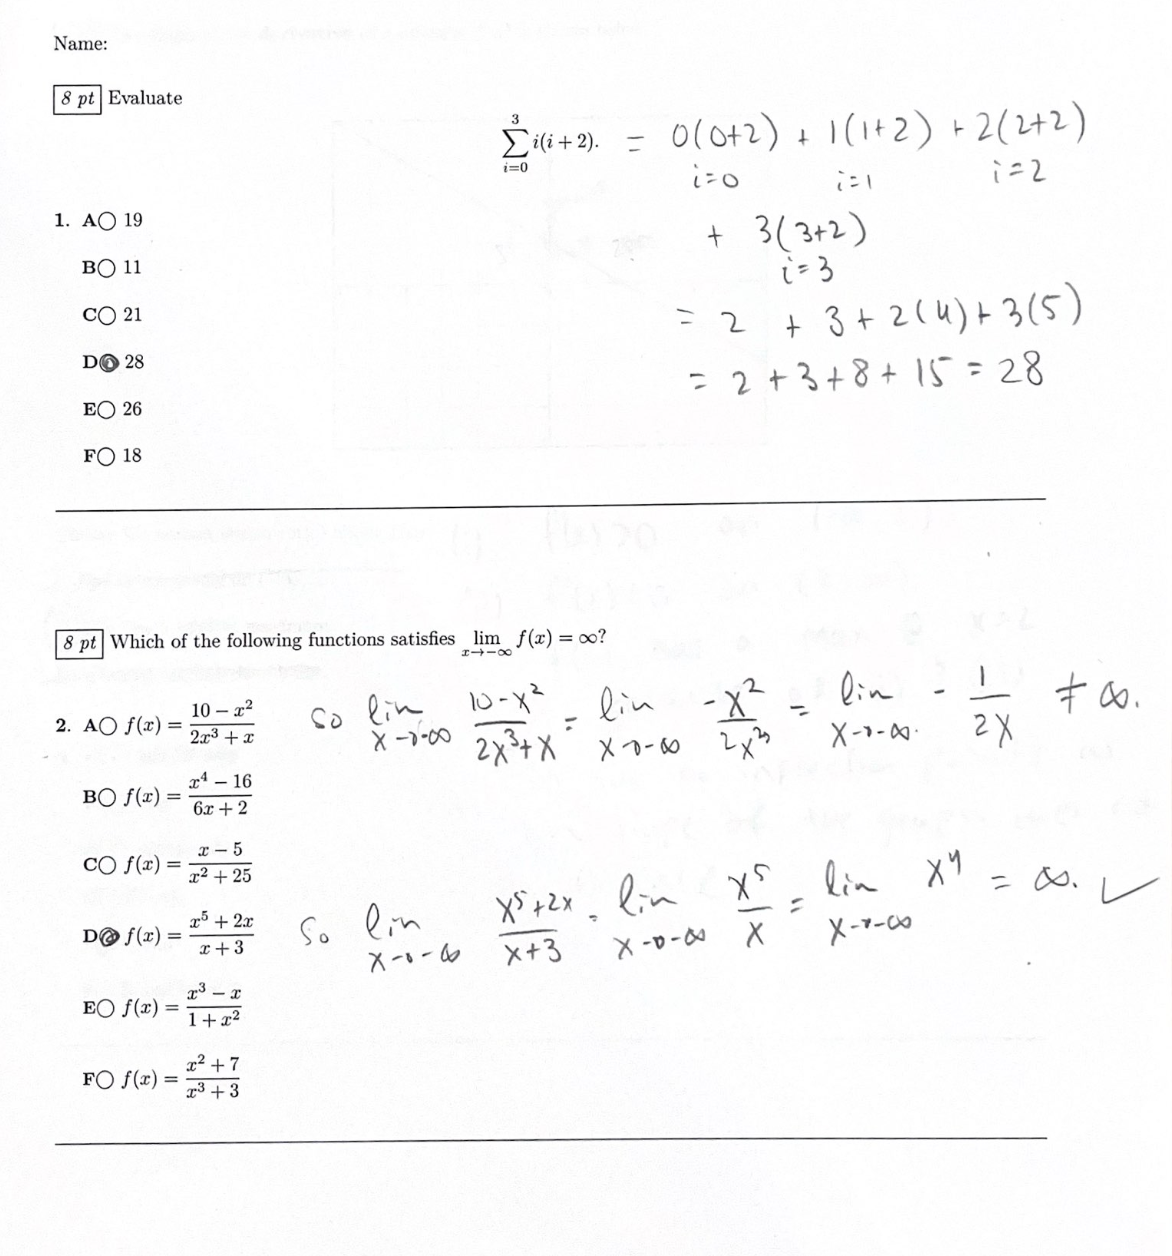 Name:
8 pt Evaluate
\sum_{i=0}^{3} i(i + 2). = 0(0+2) + 1(1+2) + 2(2+2)
i=0 i=1 i=2
+ 3(3+2)
i=3
= 2 + 3 + 2(4) + 3(5)
= 2 + 3 + 8 + 15 = 28
1. A○ 19
B○ 11
C○ 21
D● 28
E○ 26
F○ 18
8 pt Which of the following functions satisfies \lim_{x→-∞} f(x) = ∞?
2. A○ f(x) = \frac{10 - x^2}{2x^3 + x} So \lim_{x→-∞} \frac{10-x^2}{2x^3+x} = \lim_{x→-∞} \frac{-x^2}{2x^3} = \lim_{x→-∞} -\frac{1}{2x} ≠ ∞.
B○ f(x) = \frac{x^4 - 16}{6x + 2}
C○ f(x) = \frac{x - 5}{x^2 + 25}
D● f(x) = \frac{x^5 + 2x}{x + 3} So \lim_{x→-∞} \frac{x^5+2x}{x+3} = \lim_{x→-∞} \frac{x^5}{x} = \lim_{x→-∞} x^4 = ∞. ✓
E○ f(x) = \frac{x^3 - x}{1 + x^2}
F○ f(x) = \frac{x^2 + 7}{x^3 + 3}